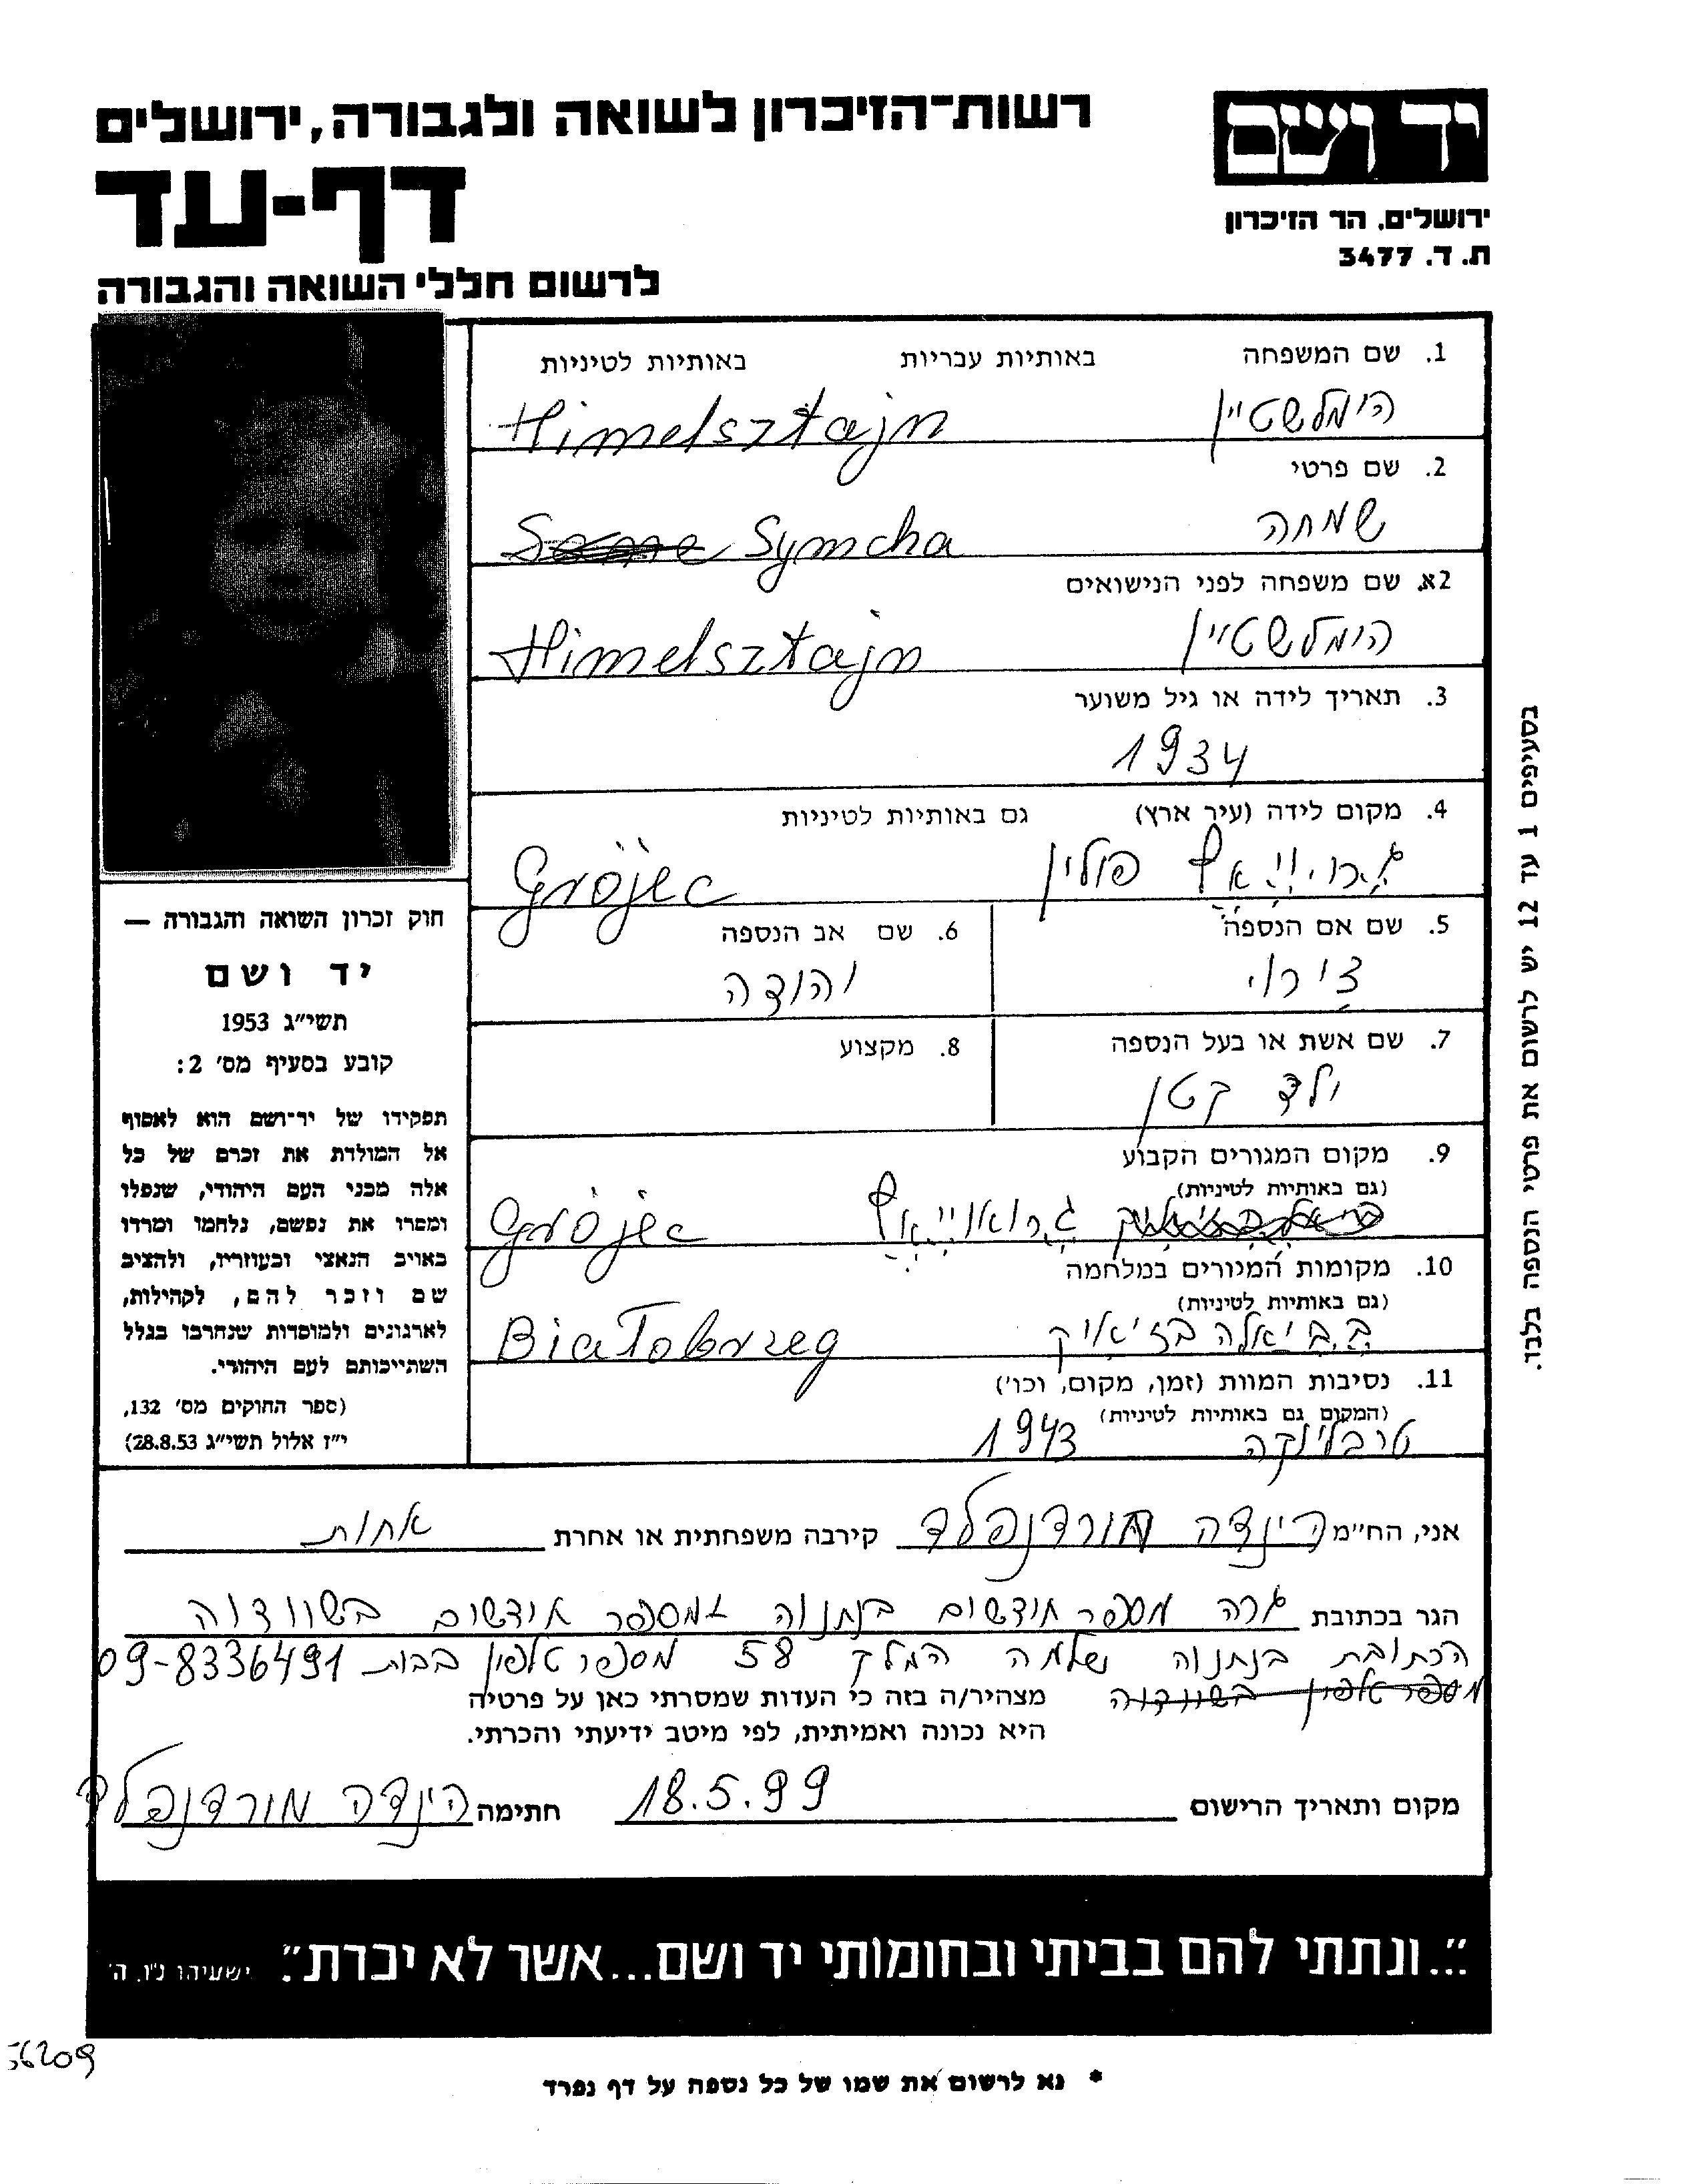 רשות־הזיכרון לשואה ולגבורה, ירושלים
דף-עד
לרשום חללי השואה והגבורה
יד ושם
ירושלים, הר הזיכרון
ת. ד. 3477
1. שם המשפחה באותיות עבריות באותיות לטיניות
הימלשטיין Himelsztajn
2. שם פרטי
שמחה Symcha
2א. שם משפחה לפני הנישואים
הימלשטיין Himelsztajn
3. תאריך לידה או גיל משוער
1934
4. מקום לידה (עיר ארץ) גם באותיות לטיניות
פולין Grojec
5. שם אם הנספה 6. שם אב הנספה
יהודה
7. שם אשת או בעל הנספה 8. מקצוע
ילד קטן
9. מקום המגורים הקבוע
(גם באותיות לטיניות)
Grojec
10. מקומות המגורים במלחמה
(גם באותיות לטיניות)
Biatobrzeg
11. נסיבות המוות (זמן, מקום, וכו')
(המקום גם באותיות לטיניות)
טרבלינקה 1943
חוק זכרון השואה והגבורה —
יד ושם
תשי"ג 1953
קובע בסעיף מס' 2:
תפקידו של יד־ושם הוא לאסוף
אל המולדת את זכרם של כל
אלה מבני העם היהודי, שנפלו
ומסרו את נפשם, נלחמו ומרדו
באויב הנאצי ובעוזריו, ולהציב
שם וזכר להם, לקהילות,
לארגונים ולמוסדות שנחרבו בגלל
השתייכותם לעם היהודי.
(ספר החוקים מס' 132,
י"ז אלול תשי"ג 28.8.53)
בסעיפים 1 עד 12 יש לרשום את פרטי הנספה בלבד.
אני, הח"מ הינדה מורדנפלד קירבה משפחתית או אחרת אחות
הגר בכתובת גרה מספר חודשים בנתניה ומספר חודשים בשוודיה
הכתובת בנתניה שלמה המלך 58 מספר טלפון בבית 09-8336491
מספר טלפון בשוודיה
מצהיר/ה בזה כי העדות שמסרתי כאן על פרטיה
היא נכונה ואמיתית, לפי מיטב ידיעתי והכרתי.
מקום ותאריך הרישום 18.5.99 חתימה הינדה מורדנפלד
"...ונתתי להם בביתי ובחומותי יד ושם...אשר לא יכרת". ישעיהו נ"ו, ה'
56209
* נא לרשום את שמו של כל נספה על דף נפרד